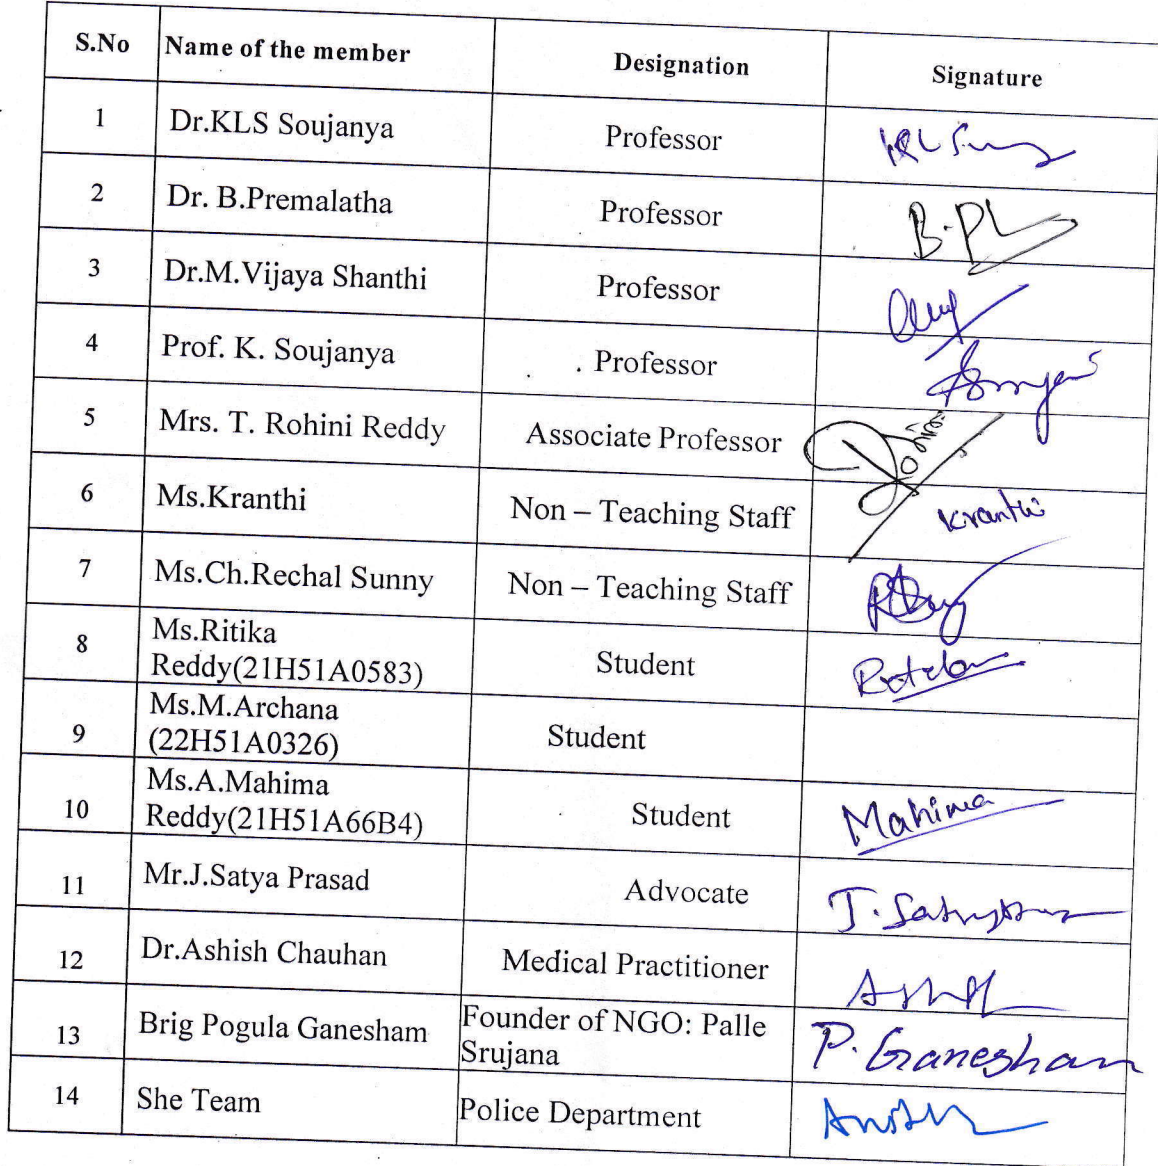 S.No Name of the member Designation Signature
1 Dr.KLS Soujanya Professor
2 Dr. B.Premalatha Professor B.PL
3 Dr.M.Vijaya Shanthi Professor
4 Prof. K. Soujanya Professor
5 Mrs. T. Rohini Reddy Associate Professor
6 Ms.Kranthi Non – Teaching Staff Kranthi
7 Ms.Ch.Rechal Sunny Non – Teaching Staff
8 Ms.Ritika
Reddy(21H51A0583) Student
9 Ms.M.Archana
(22H51A0326) Student
10 Ms.A.Mahima
Reddy(21H51A66B4) Student Mahima
11 Mr.J.Satya Prasad Advocate
12 Dr.Ashish Chauhan Medical Practitioner
13 Brig Pogula Ganesham Founder of NGO: Palle
Srujana P. Ganesham
14 She Team Police Department